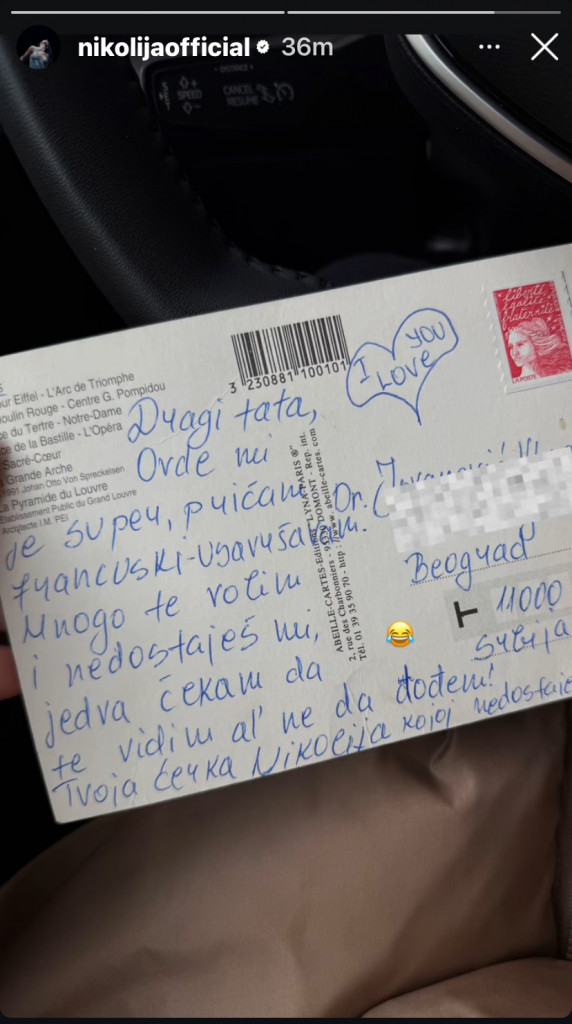 nikolijaofficial 36m
DISTANCE
SPEED
CANCEL
RESUME
our Eiffel - L'Arc de Triomphe
oulin Rouge - Centre G. Pompidou
ce du Tertre - Notre-Dame
ce de la Bastille - L'Opéra
Sacré-Cœur
Grande Arche
1991 Johan Otto Von Spreckelsen
La Pyramide du Louvre
Etablissement Public du Grand Louvre
Architecte I.M. PEI
3 230881 100101
I LOVE YOU
liberté
égalité
fraternité
LA POSTE
Dragi tata,
Ovde mi
je super, pričam
francuski-usavršavam.
Mnogo te volim
i nedostaješ mi,
jedva čekam da
te vidim al' ne da dođem!
Tvoja ćerka Nikolija kojoj nedostaje
ABEILLE-CARTES-Editions "LYNA-PARIS ®"
2, rue des Charbonniers - 95330 DOMONT - Rep. int.
Tél. 01 39 35 90 70 - http://www.abeille-cartes.com
Dr.
Beograd
T 11000
Srbija
😂